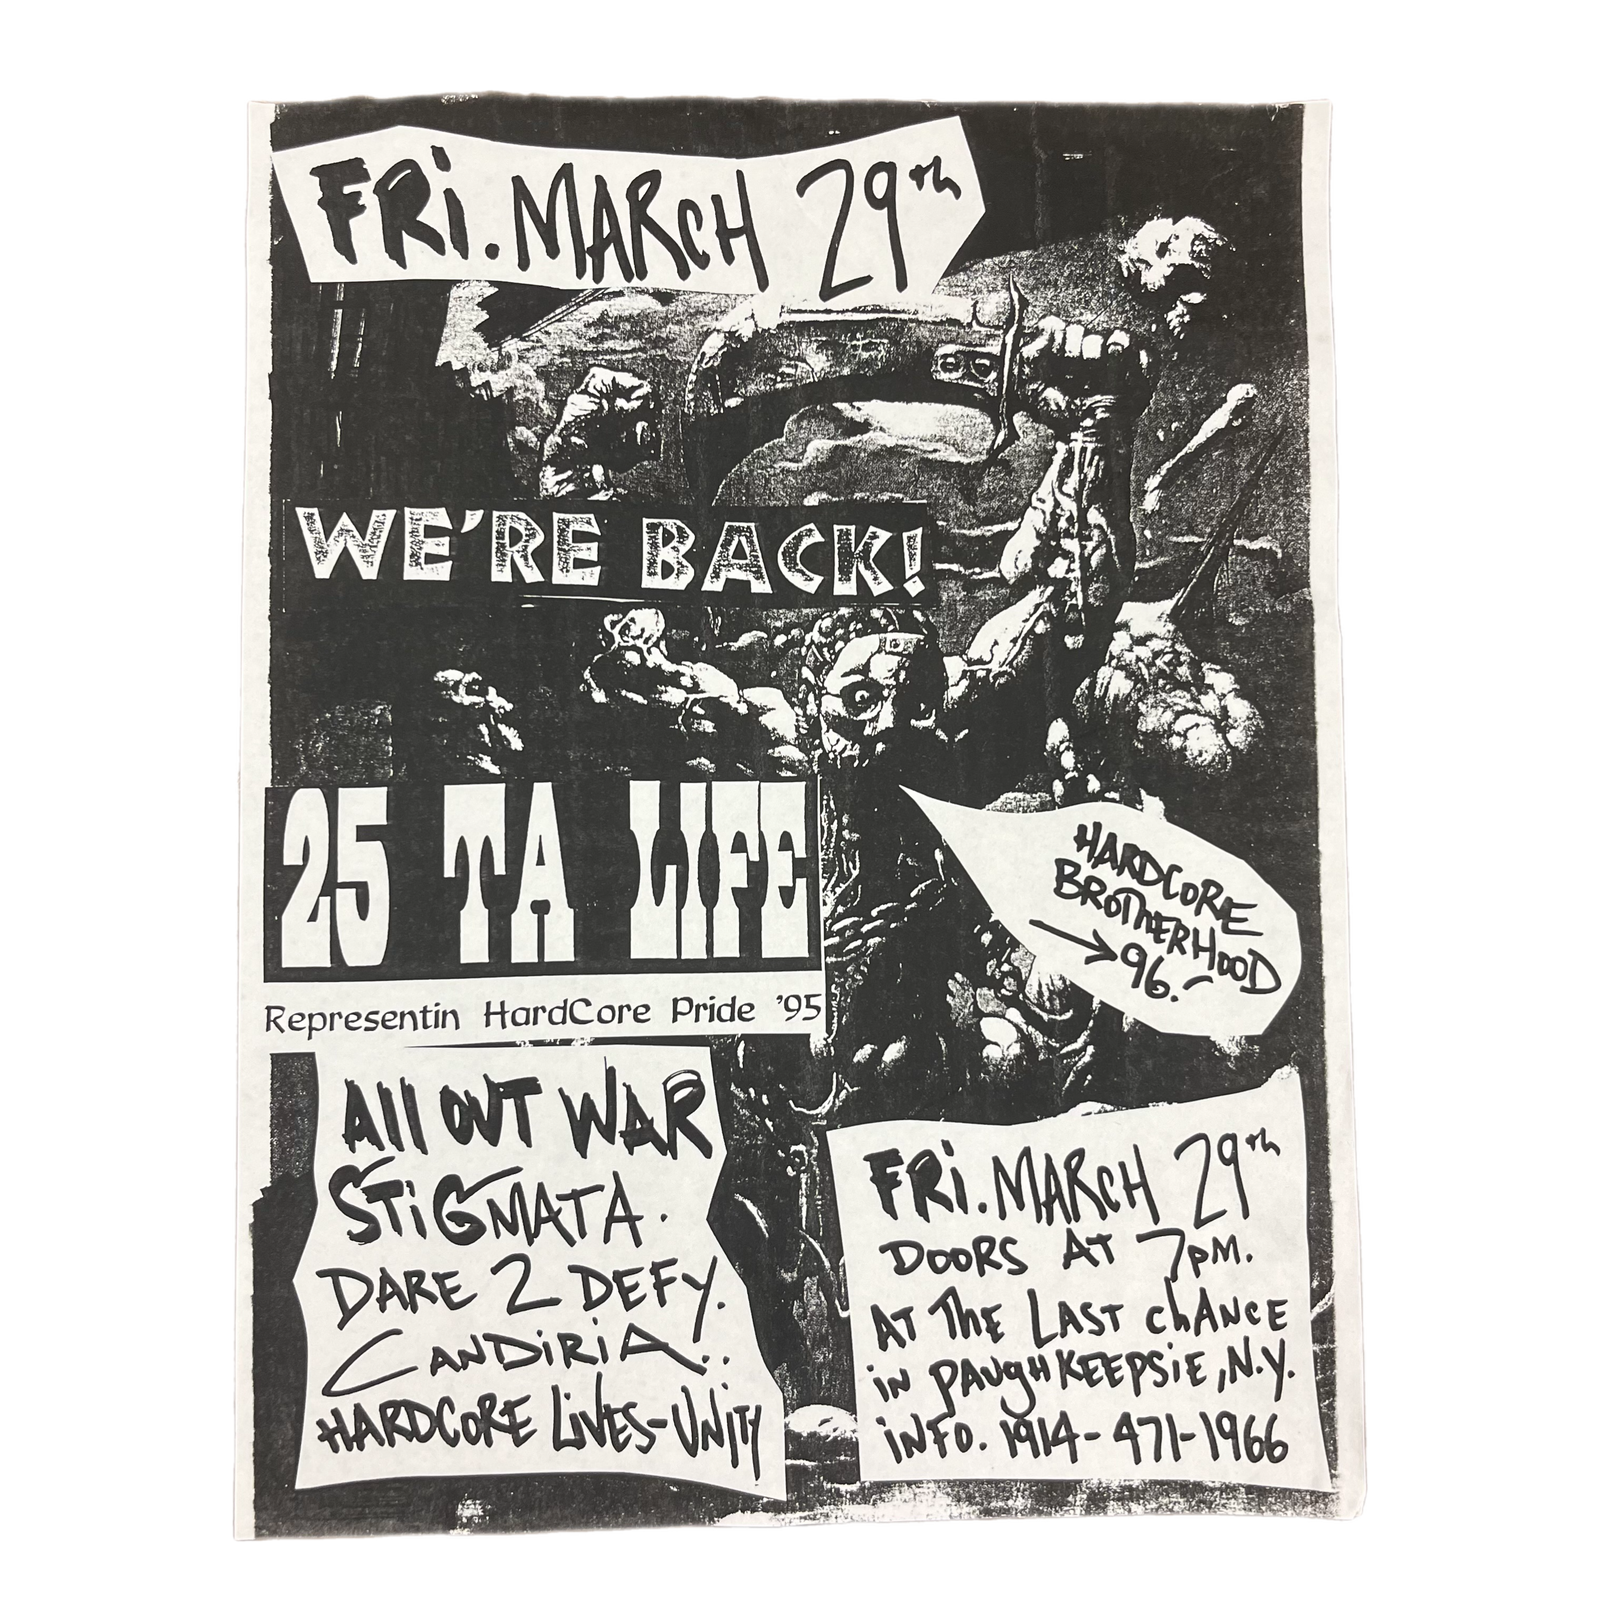 FRi. MARCH 29th
WE'RE BACK!
25 TA LIFE
Representin HardCore Pride '95
HARDCORE
BROTHERHOOD
→ 96.
All OUT WAR
STiGMATA.
DARE 2 DEFY.
CANDiRiA..
HARDCORE LiVES-UNiTY
FRi. MARCH 29th
DOORS AT 7PM.
AT The LAST chANCE
iN PAUGHKEEPSiE, N.Y.
iNFO. 1914-471-1966